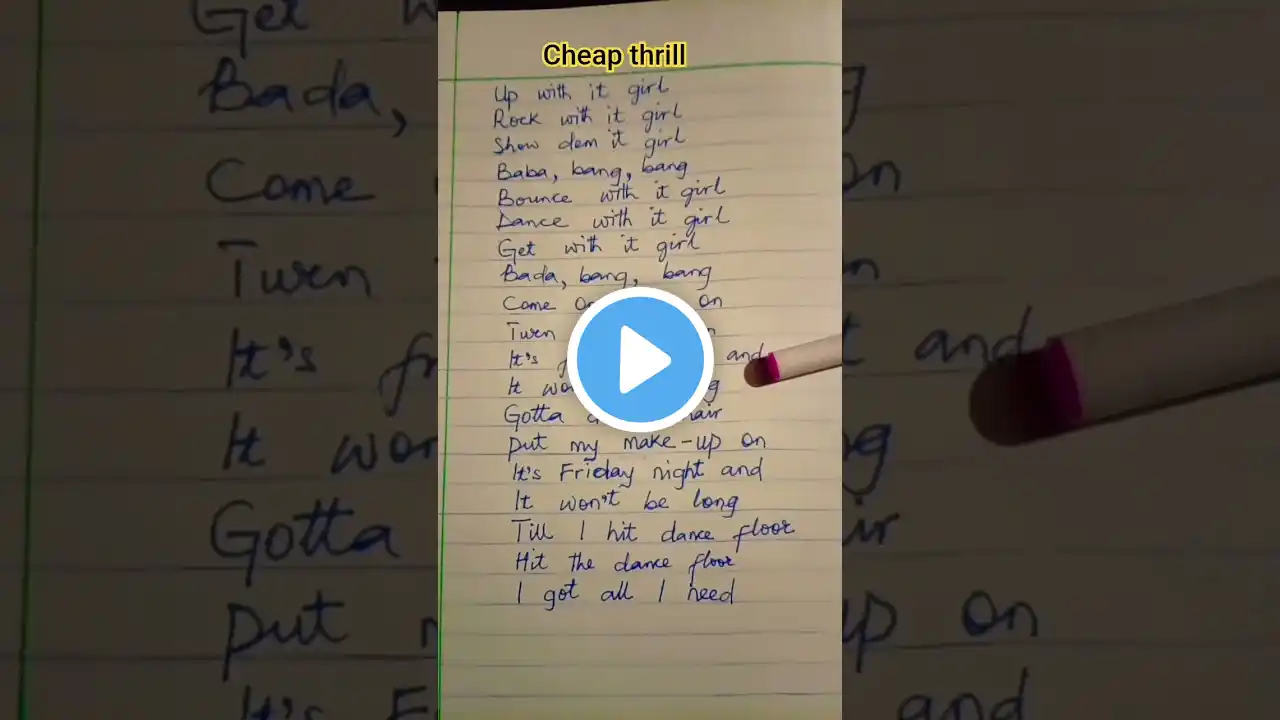 Cheap thrill
Up with it girl
Rock with it girl
Show dem it girl
Baba, bang, bang
Bounce with it girl
Dance with it girl
Get with it girl
Bada, bang, bang
Come on
Turn
It's and
It
Gotta
put my make-up on
It's Friday night and
It won't be long
Till I hit dance floor
Hit the dance floor
I got all I need